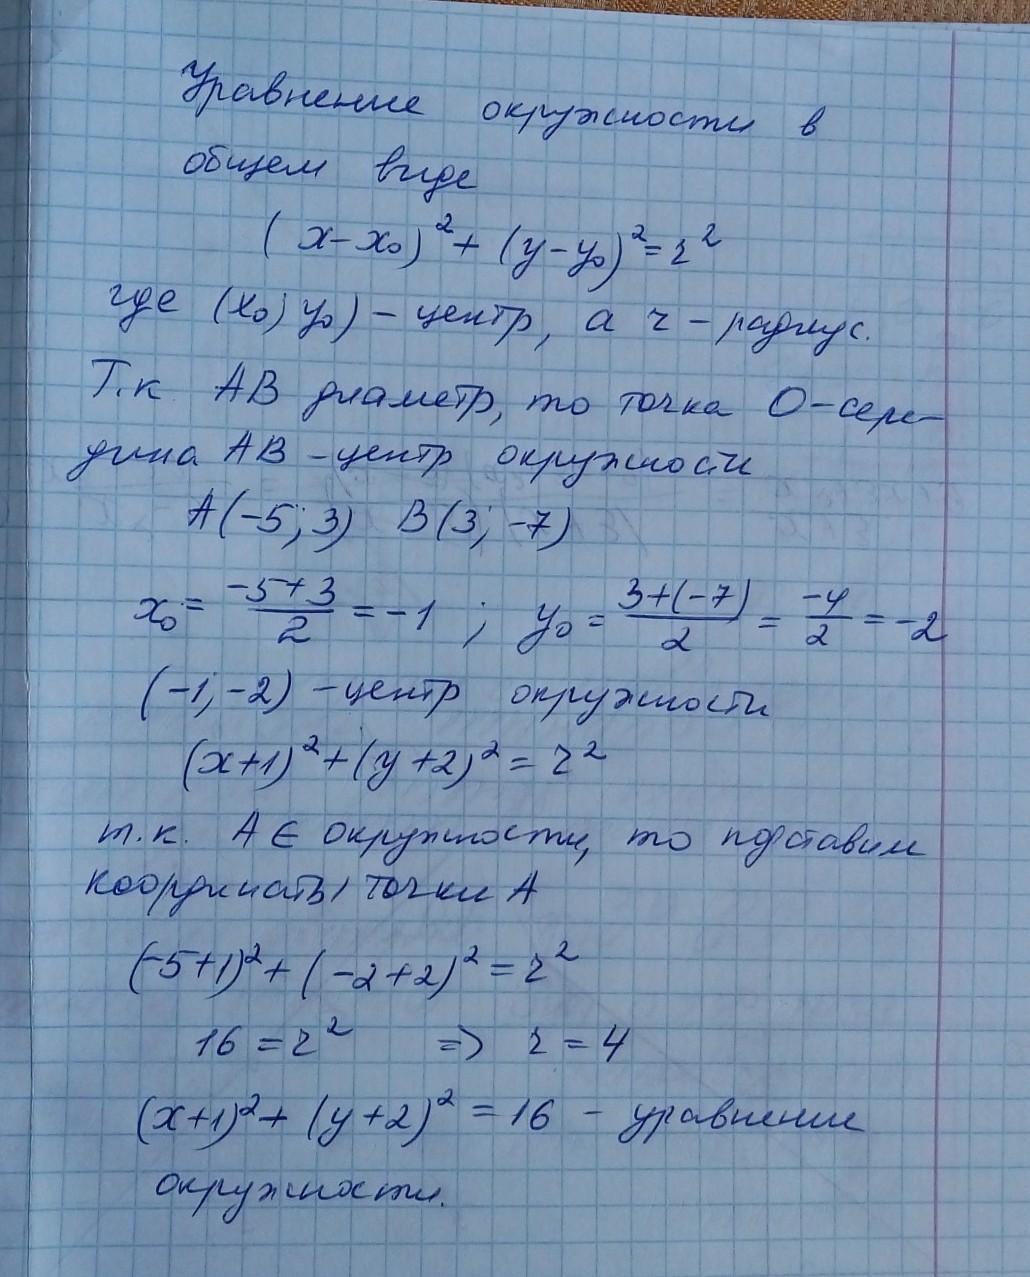 Уравнение окружности в
общем виде
(x-x₀)²+(y-y₀)²=r²
где (x₀; y₀) - центр, а r - радиус.
Т.к АВ диаметр, то точка О-сере-
дина АВ - центр окружности
А(-5; 3) В(3; -7)
x₀ = (-5+3)/2 = -1 ; y₀ = (3+(-7))/2 = -4/2 = -2
(-1; -2) - центр окружности
(x+1)²+(y+2)²=r²
т.к. А ∈ окружности, то подставим
координаты точки А
(-5+1)²+(-2+2)²=r²
16=r² => r=4
(x+1)²+(y+2)²=16 - уравнение
окружности.